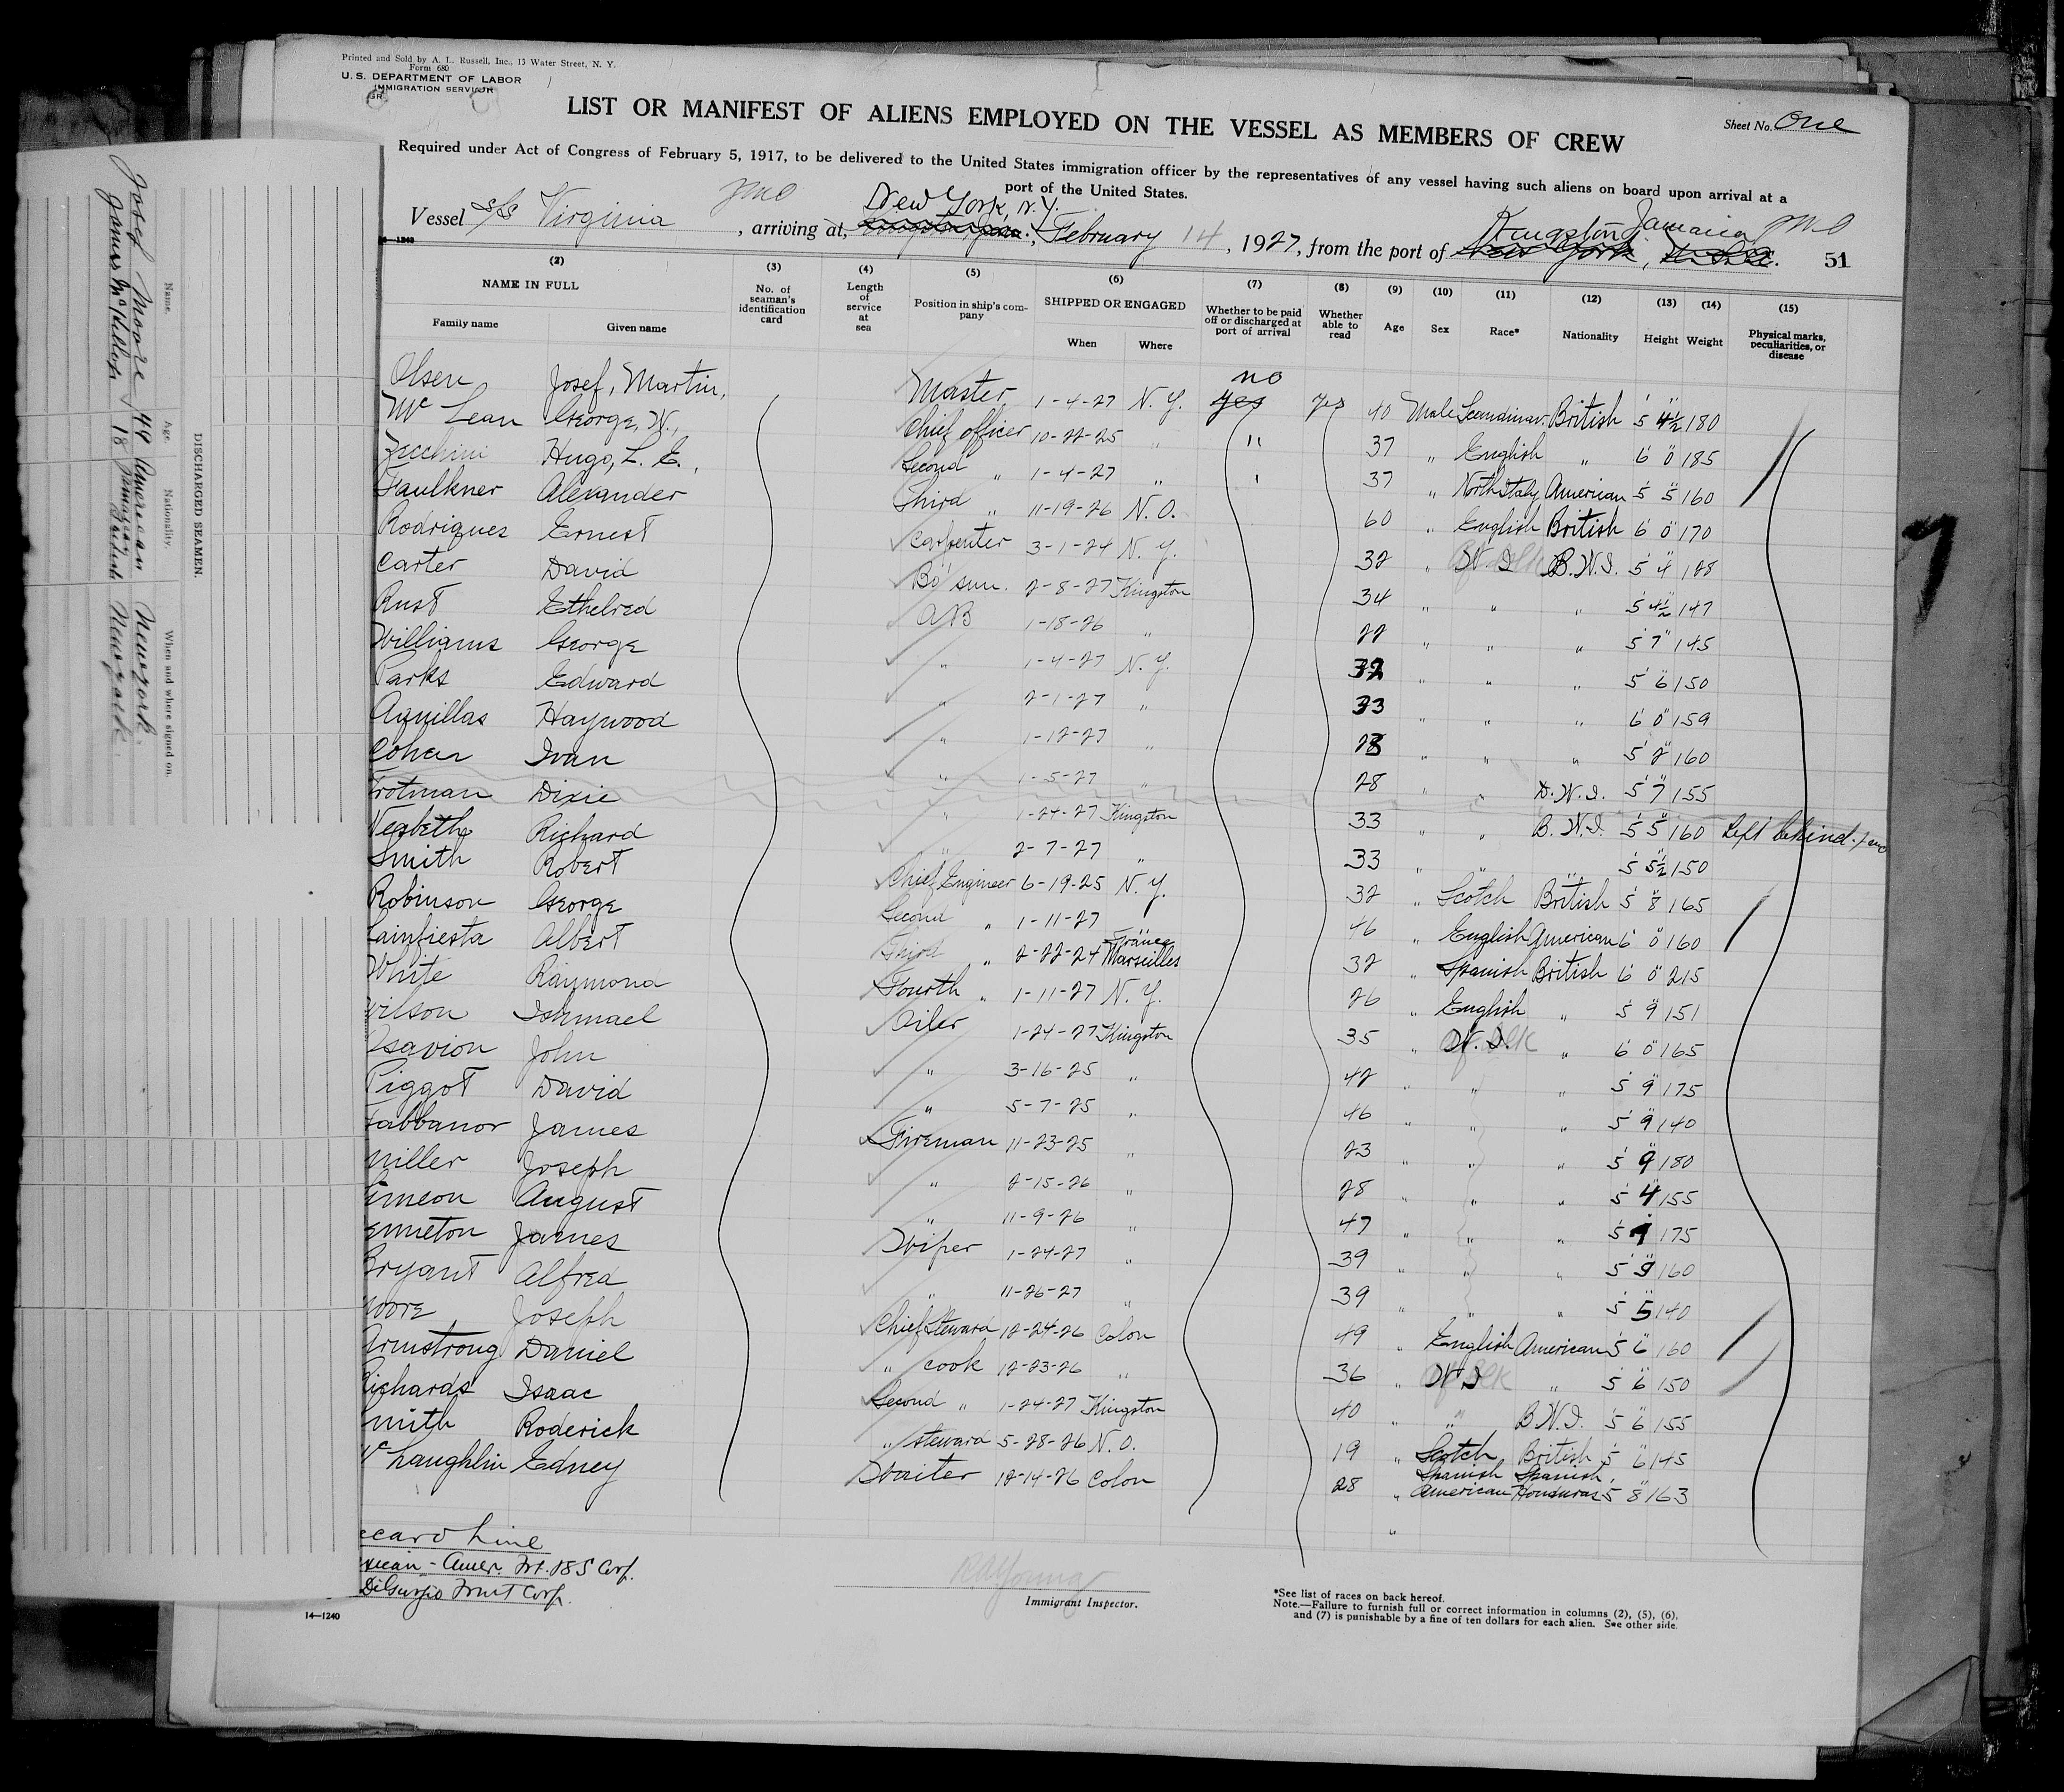 Printed and Sold by A. L. Russell, Inc., 15 Water Street, N. Y.
Form 680
U. S. DEPARTMENT OF LABOR
IMMIGRATION SERVICE
LIST OR MANIFEST OF ALIENS EMPLOYED ON THE VESSEL AS MEMBERS OF CREW
Sheet No. One
Required under Act of Congress of February 5, 1917, to be delivered to the United States immigration officer by the representatives of any vessel having such aliens on board upon arrival at a
port of the United States.
Vessel S/S Virginia, arriving at, New York, N.Y. February 14, 1927, from the port of Kingston Jamaica
14-1240
51
(2) (3) (4) (5) (6) (7) (8) (9) (10) (11) (12) (13) (14) (15)
NAME IN FULL
Family name Given name
No. of seaman's identification card
Length of service at sea
Position in ship's company
SHIPPED OR ENGAGED
When Where
Whether to be paid off or discharged at port of arrival
Whether able to read
Age Sex Race* Nationality Height Weight
Physical marks, peculiarities, or disease
Olsen Josef, Martin, Master 1-4-27 N.Y. no yes yes 40 Male Scandinav. British 5' 4½" 180
Mc Lean George, W., Chief officer 10-22-25 " " 37 " English " 6' 0" 185
Zecchini Hugo, L. E., Second " 1-4-27 " " 37 " North Italy American 5' 5" 160
Faulkner Alexander Third " 11-19-26 N.O. 60 " English British 6' 0" 170
Rodriques Ernest Carpenter 3-1-24 N.Y. 32 " W.I. B.W.I. 5' 4" 128
Carter David Bo'sun. 2-8-27 Kingston 34 " " " 5' 4½" 147
Rust Ethelred AB 1-18-26 " 22 " " " 5' 7" 145
Williams George " 1-4-27 N.Y. 32 " " " 5' 6" 150
Parks Edward " 2-1-27 " 33 " " " 6' 0" 159
Aquillas Haywood " 1-12-27 " 28 " " " 5' 2" 160
Cohen Ivan " 1-5-27 " 28 " " D.W.I. 5' 7" 155
Trotman Dixie " 1-24-27 Kingston 33 " " B.W.I. 5' 5" 160 Left behind.
Nesbeth Richard " 2-7-27 " 33 " " " 5' 5½" 150
Smith Robert Chief Engineer 6-19-25 N.Y. 32 " Scotch British 5' 8" 165
Robinson George Second " 1-11-27 46 " English American 6' 0" 160
Lainfiesta Albert Third " 2-22-24 France Marseilles 32 " Spanish British 6' 0" 215
White Raymond Fourth " 1-11-27 N.Y. 26 " English " 5' 9" 151
Wilson Ishmael Oiler 1-24-27 Kingston 35 " W.I. " 6' 0" 165
savion John " 3-16-25 " 42 " " " 5' 9" 175
Piggot David " 5-7-25 " 46 " " " 5' 9" 140
abbanor James Fireman 11-23-25 " 23 " " " 5' 9" 180
Miller Joseph " 2-15-26 " 28 " " " 5' 4" 155
imeon August " 11-9-26 " 47 " " " 5' 9" 175
enneton James Wiper 1-24-27 " 39 " " " 5' 9" 160
Bryant Alfred " 11-26-27 " 39 " " " 5' 5" 140
Moore Joseph Chief Steward 12-24-26 Colon 49 " English American 5' 6" 160
Armstrong Daniel " cook 12-23-26 " 36 " W I " 5' 6" 150
Richards Isaac Second " 1-24-27 Kingston 40 " " B.W.I. 5' 6" 155
mith Roderick " steward 5-28-26 N.O. 19 " Scotch British 5' 6" 145
Mc Laughlin Edney Waiter 12-14-26 Colon 28 " Spanish American Spanish Honduras 5' 8" 163
ccaro Line
xican-Amer. Frt. & SS Corp.
DiGiorgio Fruit Corp.
RA Young
Immigrant Inspector.
*See list of races on back hereof.
Note.—Failure to furnish full or correct information in columns (2), (5), (6),
and (7) is punishable by a fine of ten dollars for each alien. See other side.
14—1240
DISCHARGED SEAMEN.
Name. Age. Nationality. When and where signed on.
Josef Moore 49 American Newyork.
James McKillop 18 Jamaican British Newyork.